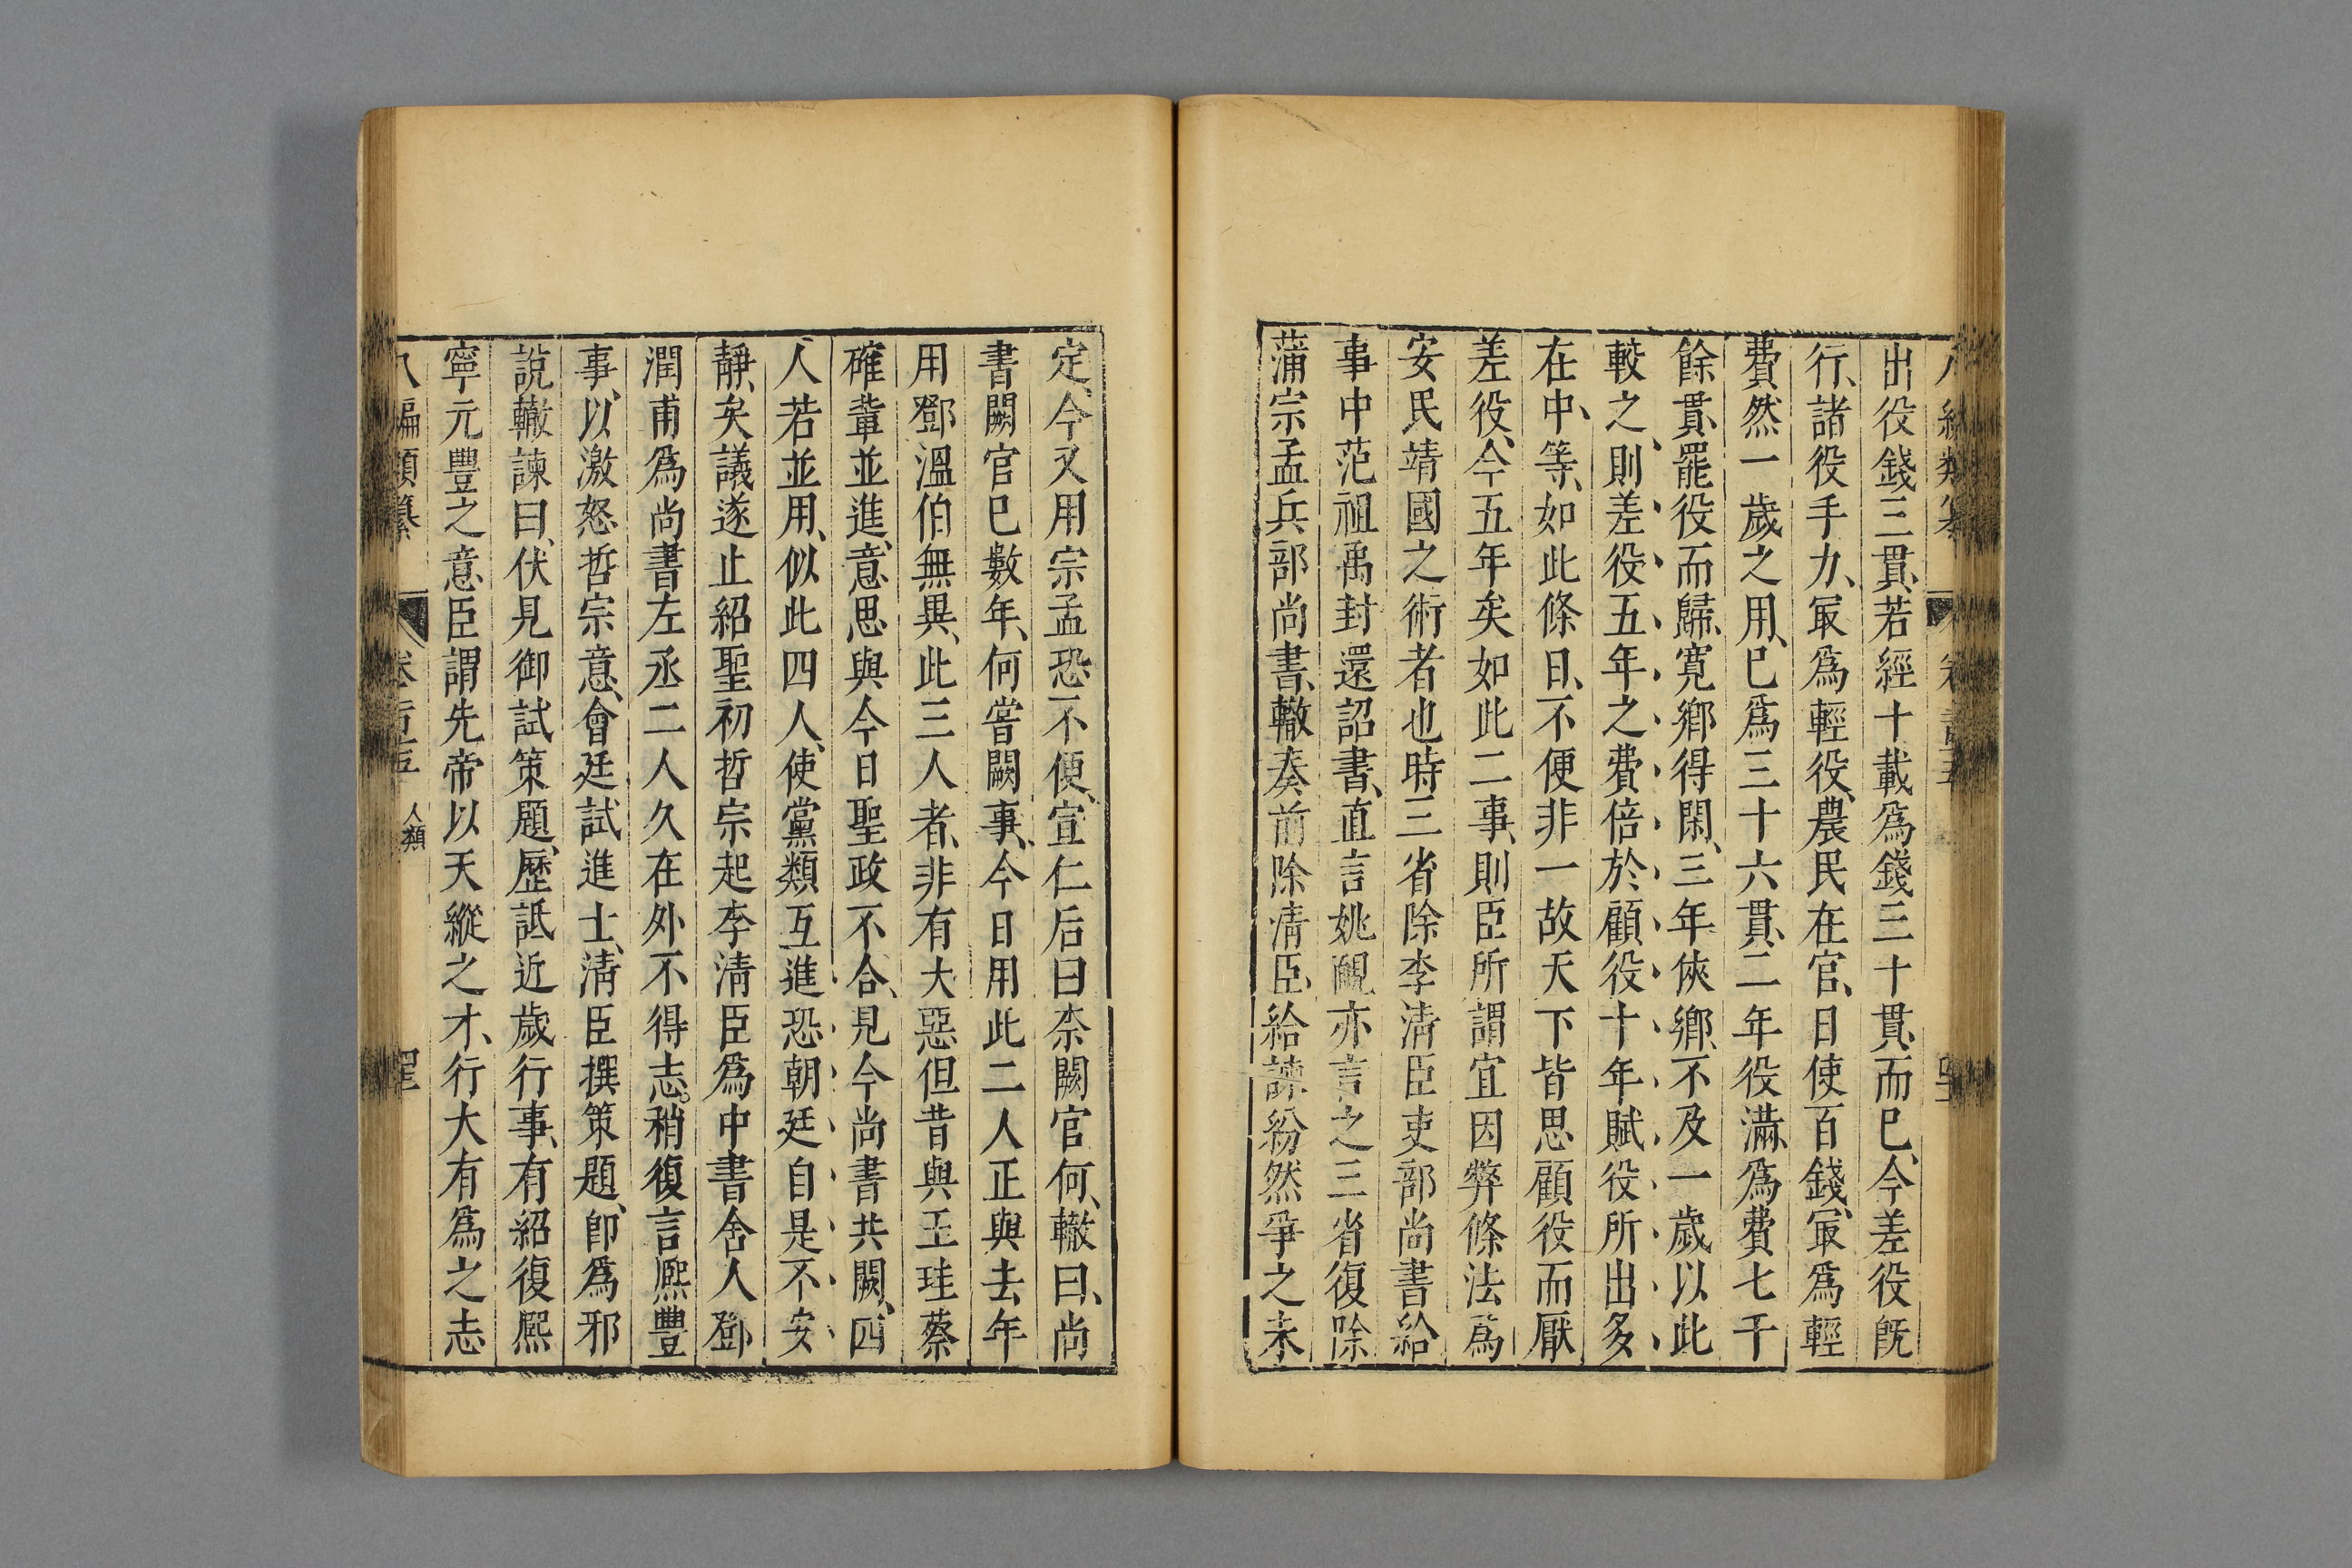 出役錢三貫、若經十載爲錢三十貫、而巳、今差役旣
行、諸役手力、冣爲輕役、農民在官、日使百錢、冣爲輕
費然一歲之用、巳爲三十六貫、二年役滿、爲費七十
餘貫、罷役而歸、寬鄉得閑、三年俠鄉、不及一歲以此
較之、則差役五年之費倍於顧役十年賦役所出多
在中、等、如此條日、不便非一故天下皆思顧役而厭
差役、今五年矣如此二事、則臣所謂宜因弊條法爲
安民靖國之術者也時三省除李清臣吏部尚書給
事中范祖禹封還詔書、直言姚勔亦言之三省復除
蒲宗孟兵部尚書、轍奏前除清臣、給諫紛然爭之未
定、今又用宗孟恐不便、宣仁后曰柰闕官何、轍曰、尚
書闕官巳數年、何嘗闕事、今日用此二人正與去年
用鄧溫伯無異、此三人者、非有大惡但昔與王珪蔡
確輩並進、意思與今日聖政不合、見今尚書共闕、四
人若並用、似此四人、使黨類互進恐朝廷自是不安
靜、矣議遂止紹聖初哲宗起李清臣爲中書舍人鄧
潤甫爲尚書左丞二人久在外不得志。稍復言熈豐
事、以激怒哲宗意、會廷試進士、清臣撰策題、卽爲邪
說轍諫曰、伏見御試策題、歷詆近歲行事、有紹復熈
寧元豐之意、臣謂先帝以天縱之才、行大有爲之志
八編類纂 卷一百五 人類